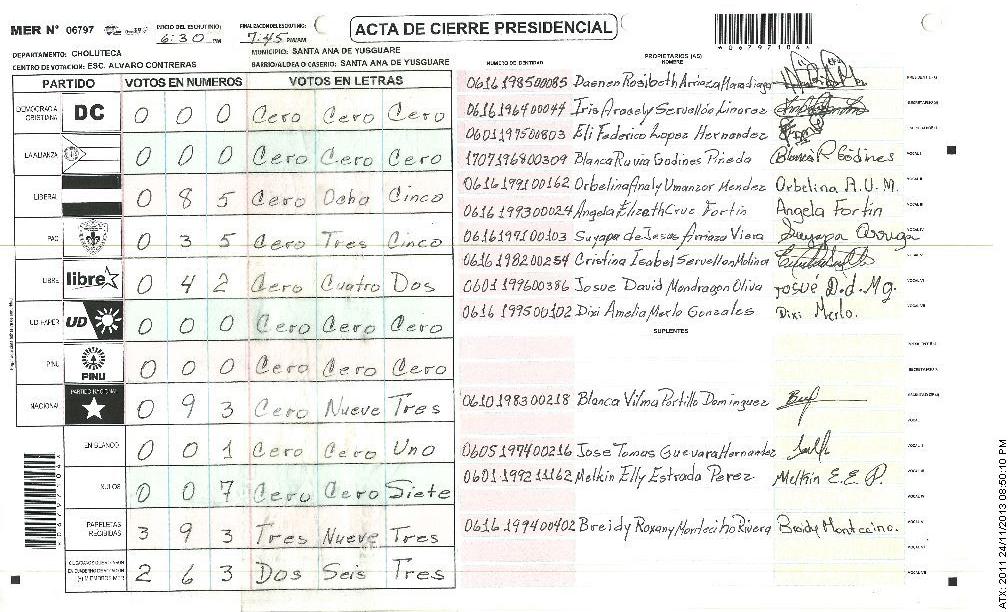 MER Nº 06797 INICIO DEL ESCRUTINIO: 6:30 PM FINALIZACION DEL ESCRUTINIO: 7:45 PM/AM ACTA DE CIERRE PRESIDENCIAL
DEPARTAMENTO: CHOLUTECA MUNICIPIO: SANTA ANA DE YUSGUARE
CENTRO DE VOTACION: ESC. ALVARO CONTRERAS BARRIO/ALDEA O CASERIO: SANTA ANA DE YUSGUARE
PARTIDO VOTOS EN NUMEROS VOTOS EN LETRAS
DEMOCRACIA CRISTIANA DC 0 0 0 Cero Cero Cero
LA ALIANZA 0 0 0 Cero Cero Cero
LIBERAL 0 8 5 Cero Ocho Cinco
PAC 0 3 5 Cero Tres Cinco
LIBRE libre 0 4 2 Cero Cuatro Dos
UD FAPER UD 0 0 0 Cero Cero Cero
PINU PINU 0 0 0 Cero Cero Cero
NACIONAL PARTIDO NACIONAL 0 9 3 Cero Nueve Tres
EN BLANCO 0 0 1 Cero Cero Uno
NULOS 0 0 7 Cero Cero Siete
PAPELETAS RECIBIDAS 3 9 3 Tres Nueve Tres
2 6 3 Dos Seis Tres
NUMERO DE IDENTIDAD PROPIETARIOS (AS) NOMBRE
0616198500085 Daenen Rosibeth Arriaza Maradiaga
0616196400044 Iris Aracely Servellón Linarez
0601197500803 Eli Federico Lopez Hernandez
1707196800309 Blanca Ruvia Godines Pineda Blanca R Godines
0616199100162 Orbelina Analy Umanzor Mendez Orbelina A. U. M.
0616199300024 Angela Elizath Cruz Fortin Angela Fortin
0616197100103 Suyapa de Jesas Arriaza Viera Suyapa Arriaga
0616198200254 Cristina Isabel Servellon Molina
0601197600386 Josue David Mondragon Oliva Josue D. d. Mg.
0616199500102 Dixi Amelia Merlo Gonzales Dixi Merlo.
SUPLENTES
0610198300218 Blanca Vilma Portillo Dominguez
0605197400216 Jose Tomas Guevara Hernandez
0601199211162 Melkin Elly Estrada Perez Melkin E. E. P.
0616199400402 Breidy Roxany Montecino Rivera Breidy Montecino.
ATX: 2011 24/11/2013 08:50:10 PM